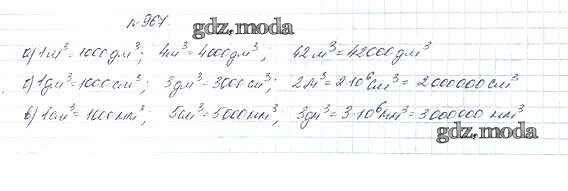 №967.
gdz.moda
а) 1м³=1000дм³; 4м³=4000дм³; 42м³=42000дм³
б) 1дм³=1000см³; 3дм³=3000см³; 2м³=2·10⁶см³=2000000см³
в) 1см³=1000мм³; 5см³=5000мм³; 3дм³=3·10⁶мм³=3000000 мм³
gdz.moda